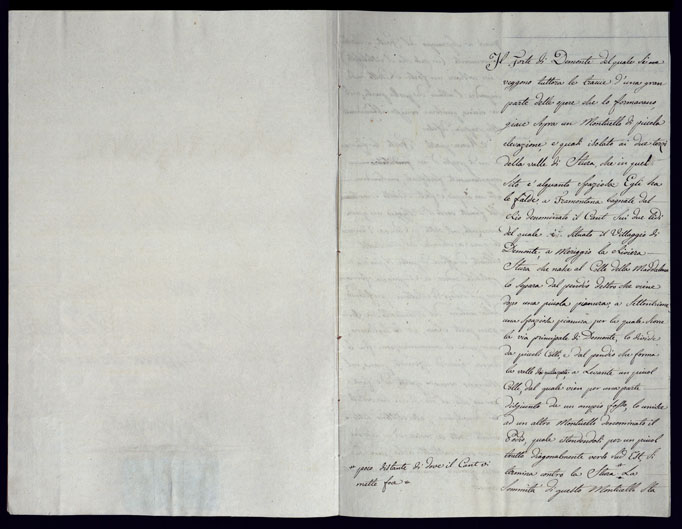 Il Forte di Demonte del quale se ne
veggono tuttora le traccie d'una gran
parte delle opere che lo formavano
giace sopra un Monticello di piccola
elevazione, e quasi isolato ai due terzi
della valle di Stura, che in quel
sito è alquanto spaziosa. Egli ha
le falde a Tramontana bagnate dal
Rio denominato il Cant sui due lidi
del quale è situato il Villaggio di
Demonte; a Meriggio la Riviera
Stura che nasce al Colle della Maddalena
lo separa dal pendio destro che viene
dopo una piccola pianura; a Settentrione
una spaziosa pianura per la quale
la via principale di Demonte, lo divide
da piccoli Colli, e dal pendio che forma
la valle a Levante un piccol
Colle, dal quale vien per una parte
disgiunto da un ampio fosso, lo unisce
ad un altro Monticello denominato il
Podio, quale estendendosi per un piccol
tratto diagonalmente verso Sud Est si
termina contro la Stura * La
Sommità di questo Monticello sta
* poco distante di dove il Cant vi
mette foce *